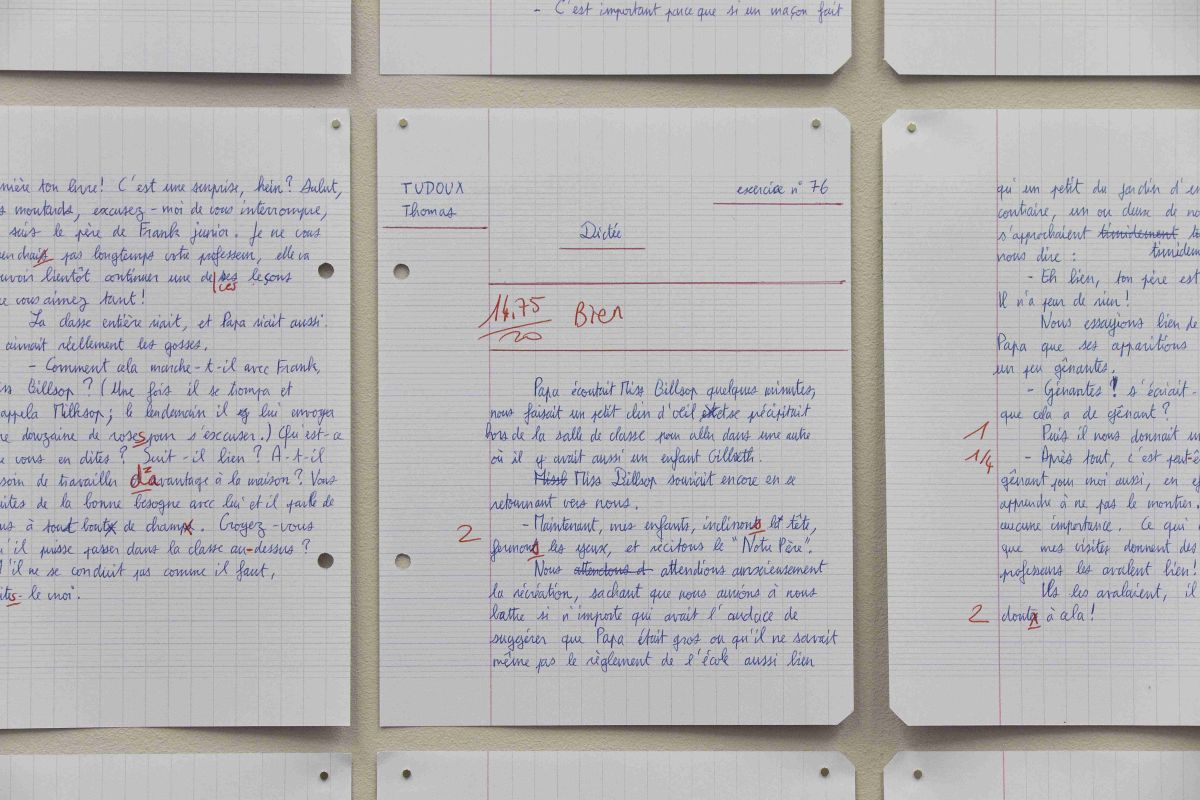 - C'est important parce que si un maçon fait
mière ton livre! C'est une surprise, hein? Salut,
s moutards, excusez-moi de vous interrompre,
suis le père de Frank junior. Je ne vous
endrais pas longtemps votre professeur, elle va
uvoir bientôt continuer une de ses leçons
ces
e vous aimez tant!
La classe entière riait, et Papa riait aussi.
aimait réellement les gosses.
- Comment cela marche-t-il avec Frank,
iss Billsop? (Une fois il se trompa et
appela Milksop; le lendemain il lui envoya
re douzaine de roses pour s'excuser.) Qu'est-ce
e vous en dites? Suit-il bien? A-t-il
soin de travailler davantage à la maison? Vous
aites de la bonne besogne avec lui et il parle de
us à tout bout de champ. Croyez-vous
u'il puisse passer dans la classe au-dessus?
'il ne se conduit pas comme il faut,
ites-le moi.
TUDOUX
Thomas
exercice n° 76
Dictée
14,75
20
Bien
Papa écoutait Miss Billsop quelques minutes,
nous faisait un petit clin d'oeil et se précipitait
hors de la salle de classe pour aller dans une autre
où il y avait aussi un enfant Gilbreth.
Missb Miss Billsop souriait encore en se
retournant vers nous.
2
- Maintenant, mes enfants, inclinons la tête,
fermons les yeux, et récitons le "Notre Père".
Nous attendons d attendions anxieusement
la récréation, sachant que nous aurions à nous
battre si n'importe qui avait l'audace de
suggérer que Papa était gros ou qu'il ne savait
même pas le règlement de l'école aussi bien
qu'un petit du jardin d'en
contraire, un ou deux de no
s'approchaient timidement
timidem
nous dire :
- Eh bien, ton père est
Il n'a peur de rien!
Nous essayions bien de
Papa que ses apparitions
un peu gênantes.
- Gênantes! s'écriait-
que cela a de gênant?
1
Puis il nous donnait un
1/4
- Après tout, c'est peut-ê
gênant pour moi aussi, en ef
apprendre à ne pas le montrer.
aucune importance. Ce qui
que mes visites donnent des
professeurs les avalent bien!
Ils les avalaient, il
2
doute à cela!